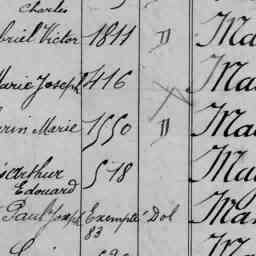 Charles
briel Victor 1811 D Ma
Marie Joseph 416 Ma
rin Marie 1550 D Ma
Arthur 518 Ma
Edouard
Paul Joseph Exempté Dol Ma
83